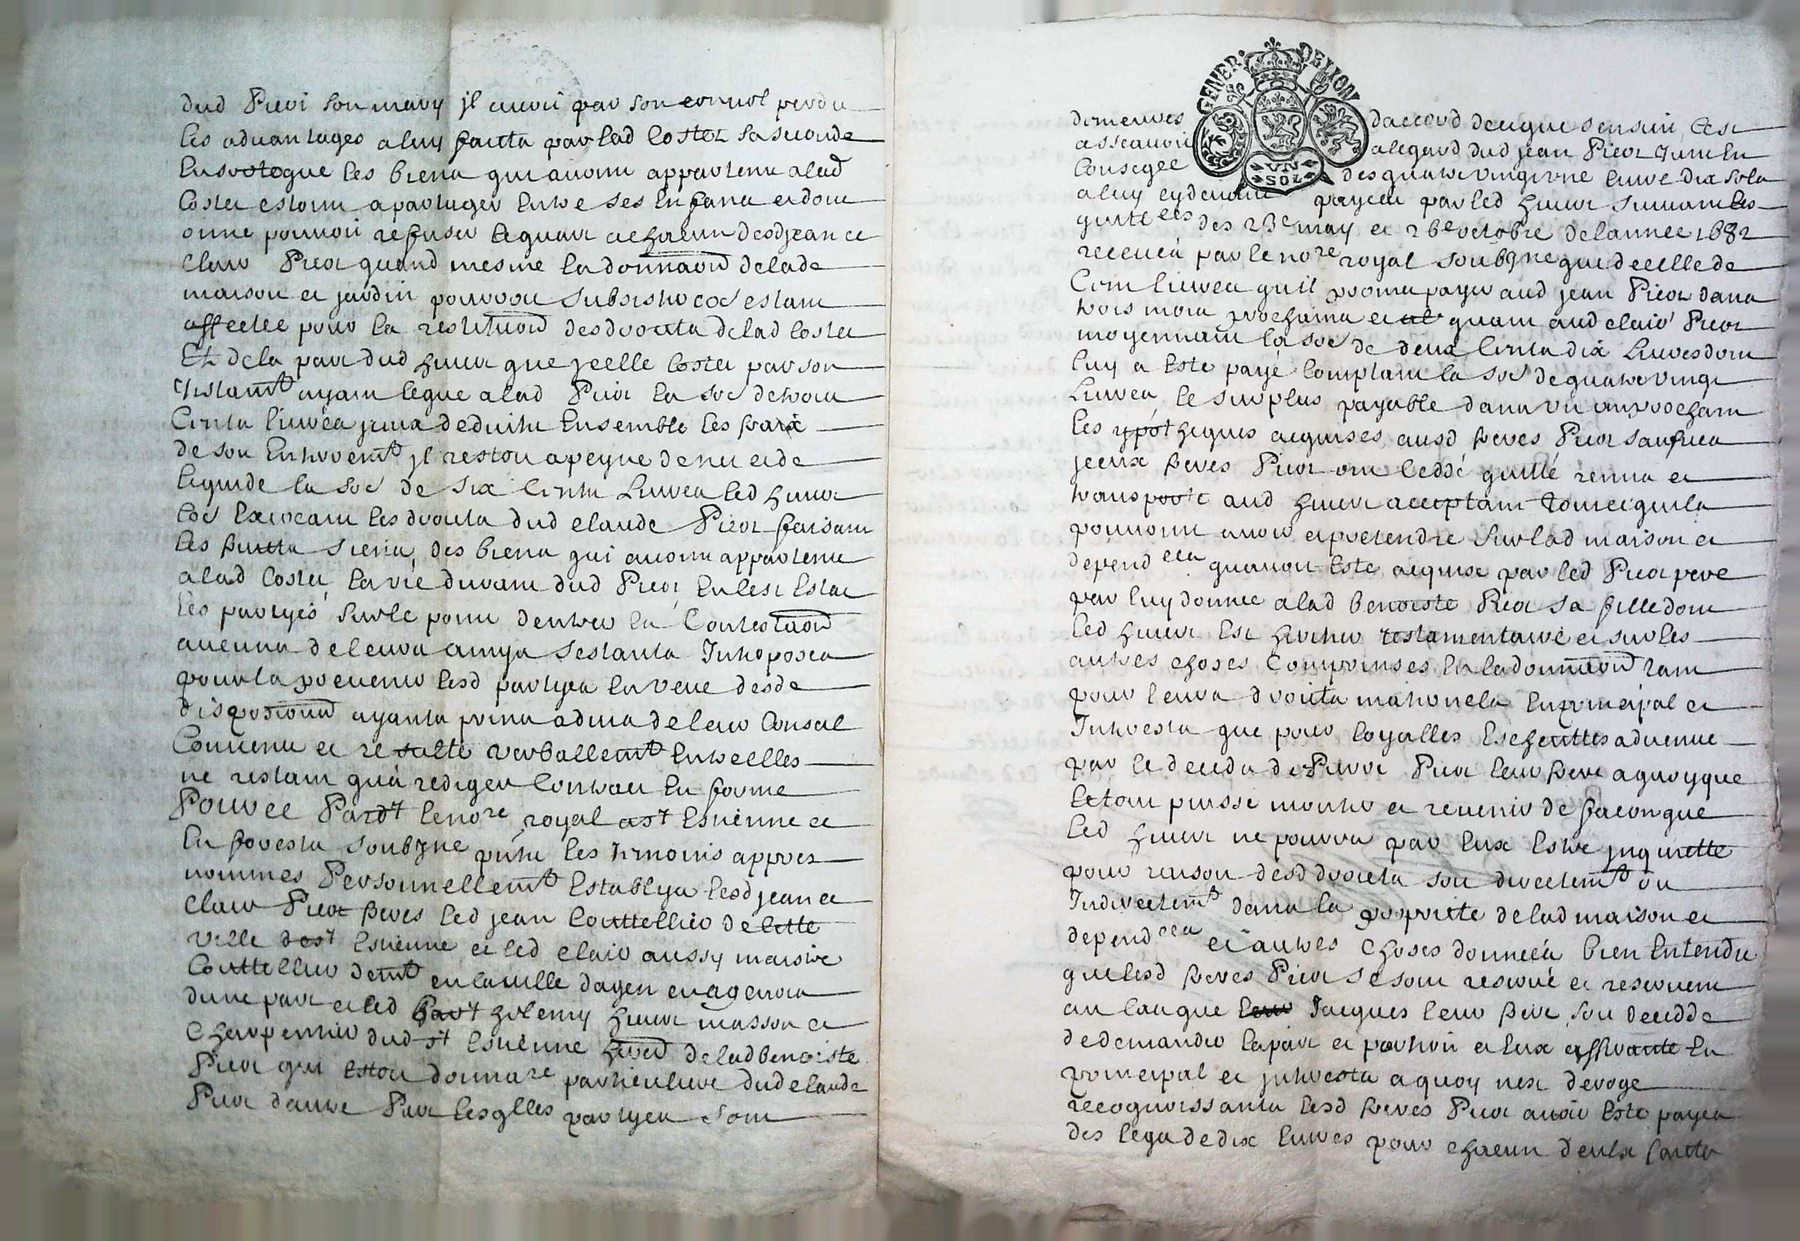 dud Picot son mary il auoit par son convol perdu
les aduantages a luy faicts par lad Coster sa seconde
en sorte que les biens qui auoint appartenu a lad
Coster estoint a partager entre ses enfans et dont
on ne pouuoit refuser le quart a chacun desd jean et
claude Picot quand mesme la donnaon de lade
maison et jardin pourroit subsister cõe estant
affectee pour la restituon des droicts de lad Coster
Et de la part dud hieur que jcelle Coster par son
testamt ayant legue a lad Picot la soe de trois
Cents liures jceux deduits ensemble les fraix
de son enterremt jl restoit a peyne de net et de
liquide la soe de six cents liures led hieur
les droicts dud claude Picot faisant
les fruits siens des biens qui auoint appartenu
a lad Coster la vie durant dud Picot
les partyes sur le point dentrer en Contestaon
aucuns de leurs amys sestants Interposes
pour la preuenir lesd partyes en veue desd
disposions ayants prins aduis de leur Conseil
Conuenu et resulte verballemt entre elles
ne restant qua rediger contract en forme
Pource Pardt le nore royal a st Estienne et
en forests soubzne pnts les tesmoins appres
nommes Personnellemt establys lesd jean et
claude Picot freres led jean Couttellier de cette
ville de st Estienne et led claude aussy maistre
Couttellier demt en la ville dagen en agenois
dune part et led Bart hieur masson et
Charpentier dud st Estienne de lad benoiste
Picot qui estoit donnare particuliere dud claude
Picot dautre Part lesqlles partyes sont
GENER. DE LION
UN SOL
demeures daccord de ce que sensuit Cest
asscauoir a legard dud jean Picot
des quatre vingt vne liures dix sols
a luy payes par led hieur suiuant les
quitces des 23e may et 26e octobre de lannee 1682
receues par le nore royal soubzne que de celle de
Cent liures quil promet payer aud jean Picot dans
trois mois prochains et quant aud claude Picot
moyennant la soe de deux Cents dix liures dont
luy a este paye comptant la soe de quatre vingt
liures le surplus payable dans vn an prochain
les ypotheques acquises ausd freres Picot
jceux freres Picot ont cedde quitte remis et
transporte aud hieur acceptant tout ce quils
pouuoint auoir et pretendre sur lad maison et
dependces quauoit este acquise par led Picot pere
par luy donnee a lad benoiste Picot sa fille dont
led hieur est heritier testamentaire et sur les
autres choses Comprinses en la donnaon tant
pour leurs droicts maternels en principal et
Interests que pour loyalles escheuttes aduenue
par le decedz de Pierre Picot leur frere a quoy que
le tout puisse monter et reuenir de facon que
led hieur ne pourra par eux estre inquiette
pour raison desd droicts soit directemt ou
Indirectemt dans la propriete de lad maison et
dependces et autres choses donnees bien entendu
que lesd freres Picot se sont reserué et reseruent
au cas que Jacques leur frere soit decedde
de demander la part et portion a eux affferante en
principal et jnterests a quoy nest deroge
recognoissants lesd freres Picot auoir este payes
des legs de dix liures pour chacun deux faicts